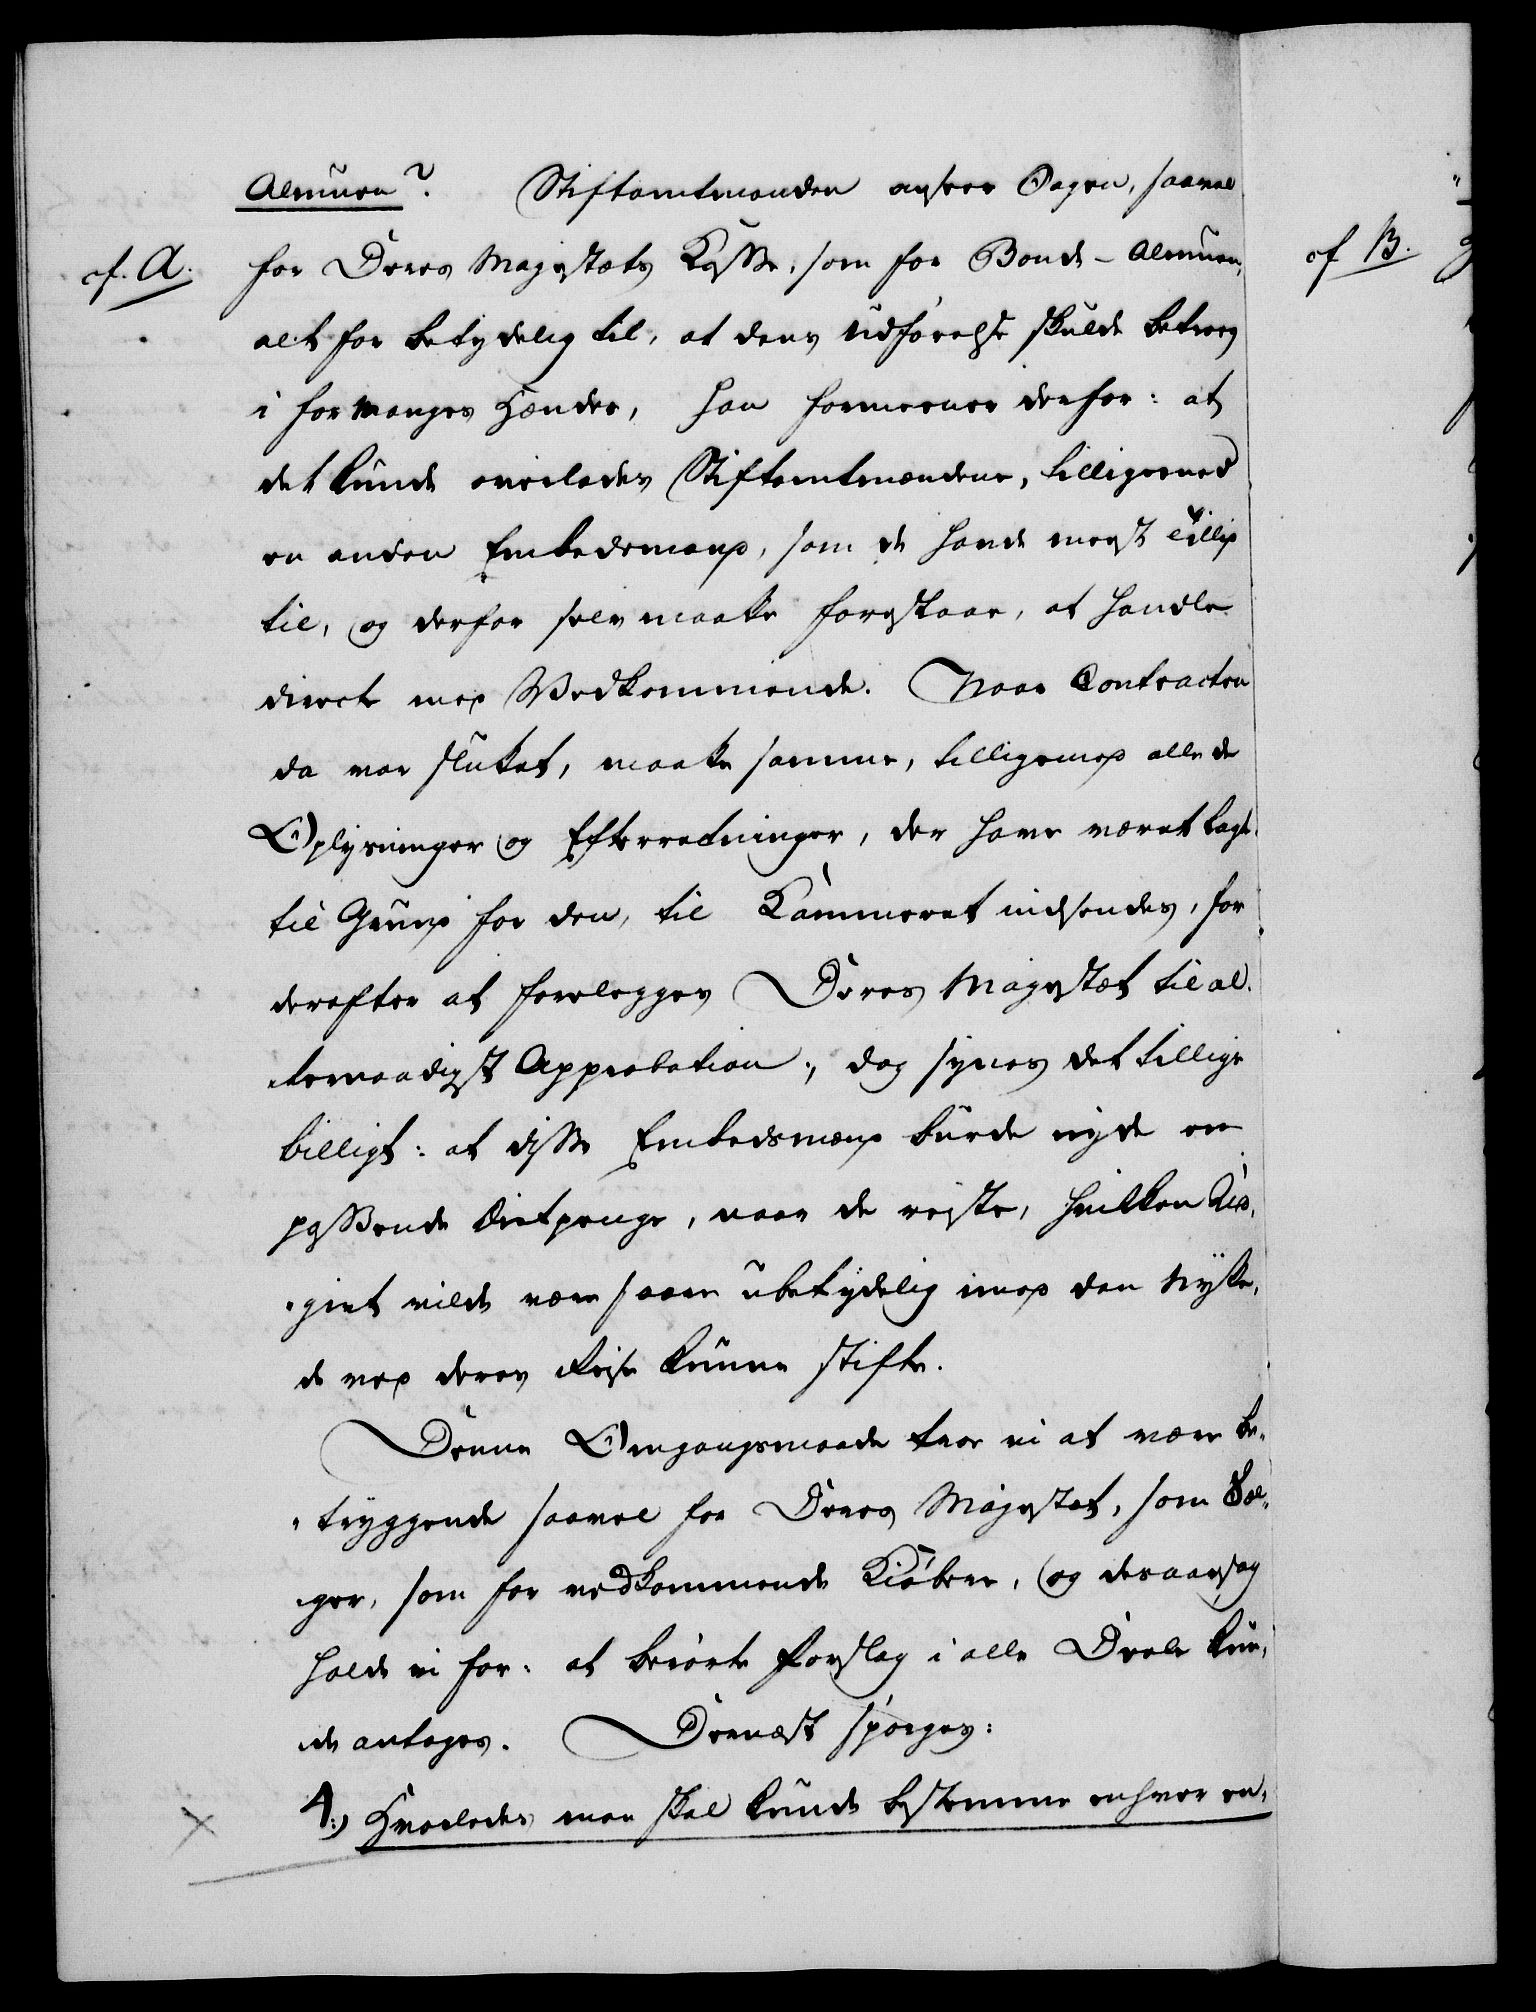 Almuen? Stiftamtmanden anseer Sagen, saavel
cf. A. for Deres Majestæts Kasse, som for Bonde-Almuen,
alt for betydelig til, at dens Udførelse skulde betroes
i for manges Hænder, han formeener derfor: at
det kunde overlades Stiftamtmændene, tilligemed
en anden Embedsmand, som de havde meest Tillid
til, og derfor selv maatte forestaae, at handle
directe med Vedkommende. Naar Contracten
da var sluttet, maatte samme, tilligemed alle de
Oplysninger og Efterretninger, der have været lagt
til Grund for den, til Kammeret indsendes, for
derefter at forelægges Deres Majestæt til al-
lernaadigst Approbation; dog synes det tillige
billigt: at disse Embedsmænd burde nyde en
passende Dietpenge, naar de reiste, hvilken Ud-
givt vilde være saare ubetydelig imod den Nytte,
de ved deres Reise kunne stifte.
Denne Omgangsmaade troe vi at være be-
tryggende saavel for Deres Majestæt, som Sæl-
ger, som for vedkommende Kiøbere, og desaarsag
holde vi for: at berørte Forslag i alle Deele kun-
de antages. Dernæst spørges:
4.) Hvorledes man skal kunde bestemme enhver en-
cf B.